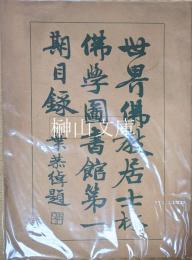 世界佛教居士林
佛學圖書館第一
期目錄
葉恭綽題
榊山文庫